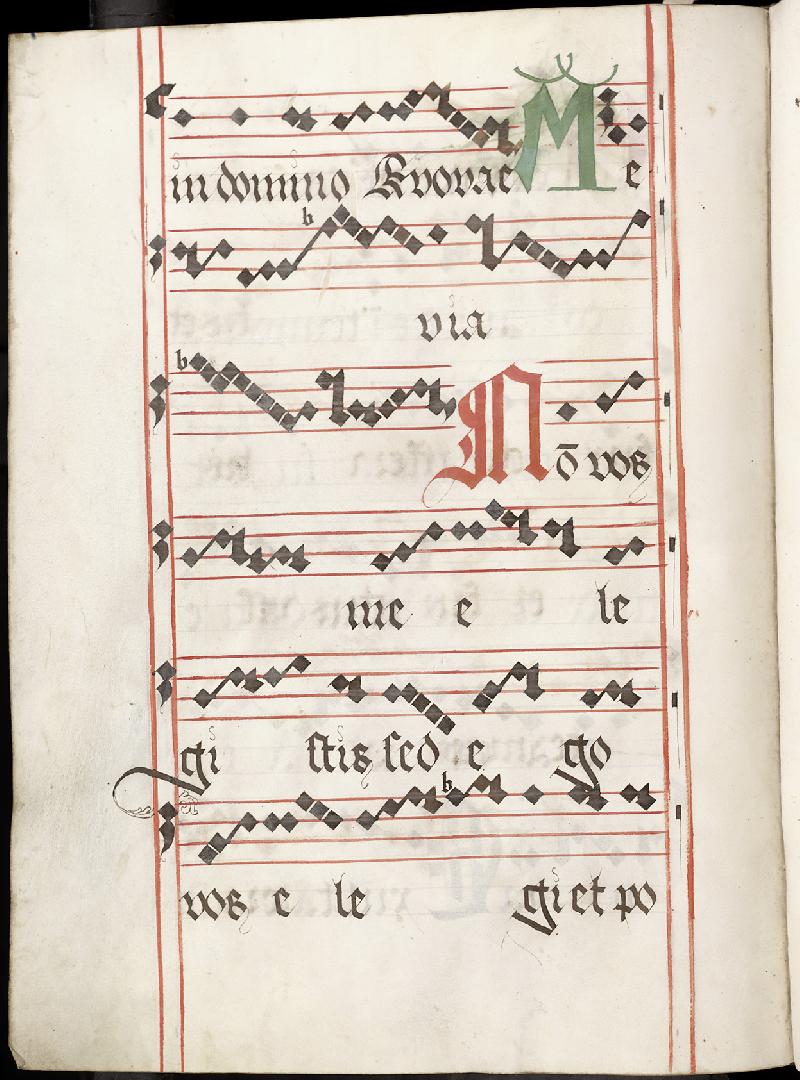 in domino Evovae M e
via
N ō vos
me e le
gi stis sed e go
vos e le gi et po